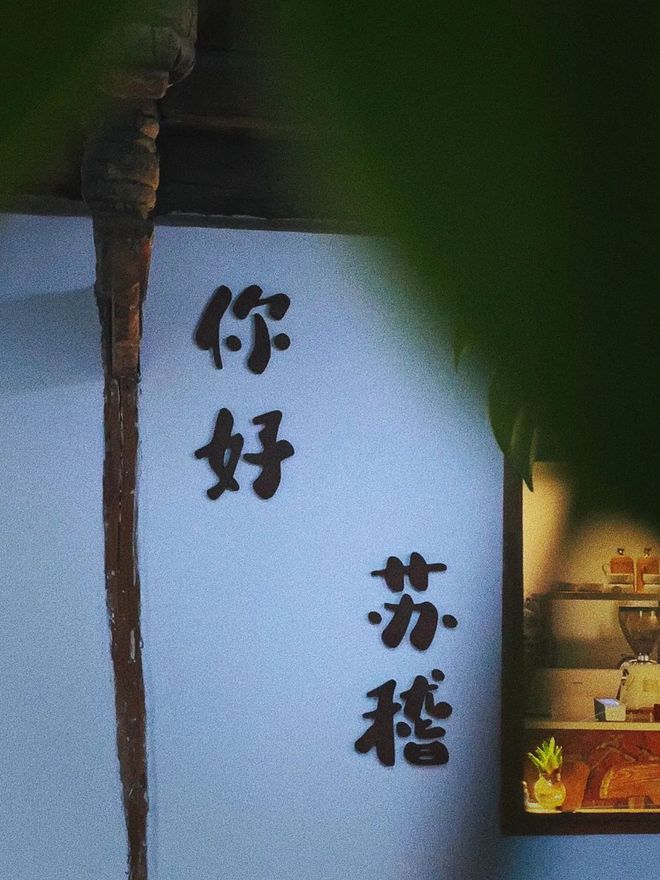 你好
苏稽